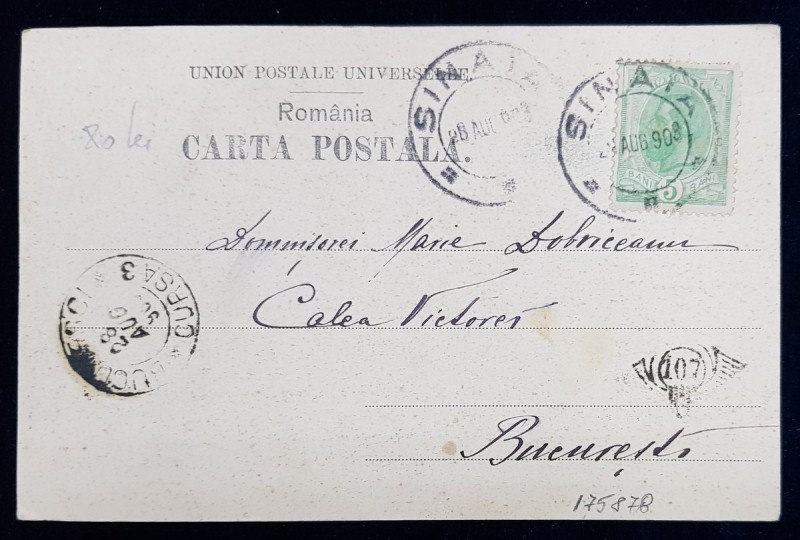 UNION POSTALE UNIVERSELLE
România
CARTA POSTALĂ.
80 lei
SINAIA
28 AUG 903
SINAIA
28 AUG 903
BANI 5 BANI
Domnișorei Marie Dobriceanu
Calea Victoriei
București
CURSA 3
28
AUG
107
175878